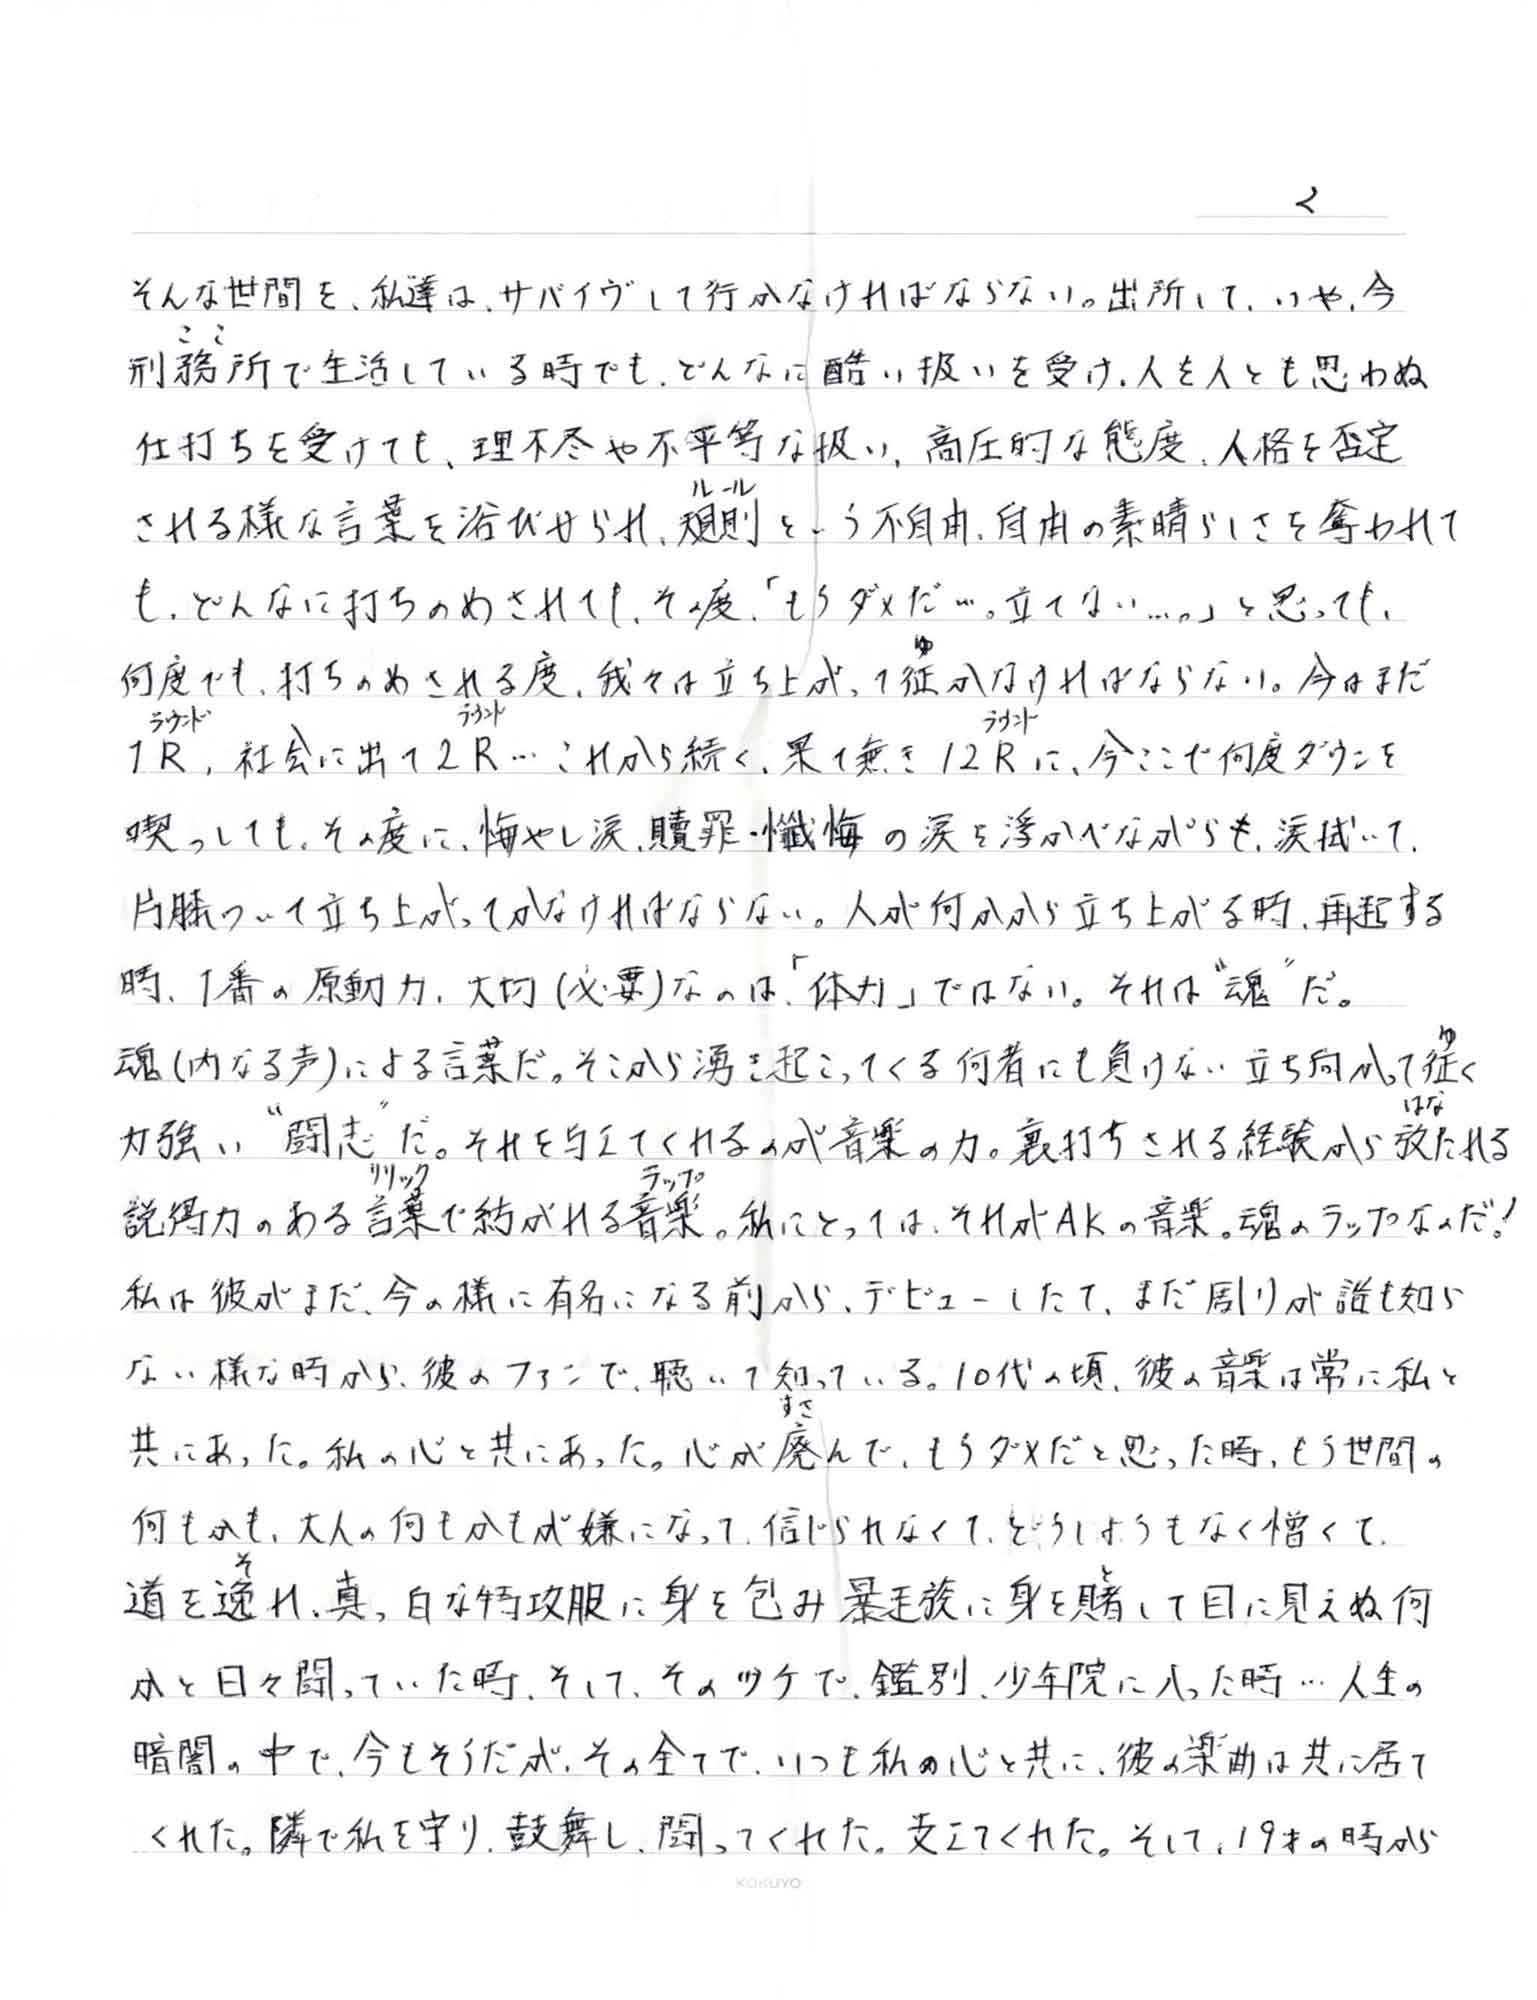 2
そんな世間を、私達は、サバイヴして行かなければならない。出所して、いや、今
ここ
刑務所で生活している時でも、どんなに酷い扱いを受け、人を人とも思わぬ
仕打ちを受けても、理不尽や不平等な扱い、高圧的な態度、人格を否定
ルール
される様な言葉を浴びせられ、規則という不自由、自由の素晴らしさを奪われて
も、どんなに打ちのめされても、その度、「もうダメだ…。立てない…。」と思っても、
ゆ
何度でも、打ちのめされる度、我々は立ち上がって征かなければならない。今はまだ
ラウンド ラウンド ラウンド
1R、社会に出て2R…これから続く、果て無き12Rに、今ここで何度ダウンを
喫っしても、その度に、悔やし涙、贖罪・懺悔の涙を浮かべながらも、涙拭いて、
片膝ついて立ち上がってかなければならない。人が何かから立ち上がる時、再起する
時、1番の原動力、大切(必要)なのは、「体力」ではない。それは“魂”だ。
ゆ
魂(内なる声)による言葉だ。そこから湧き起こってくる何者にも負けない立ち向かって征く
はな
力強い“闘志”だ。それを与えてくれるのが音楽の力。裏打ちされる経験から放たれる
リリック ラップ
説得力のある言葉で紡がれる音楽。私にとっては、それがAKの音楽。魂のラップなのだ!
私は彼がまだ、今の様に有名になる前から、デビューしたて、まだ周りが誰も知ら
ない様な時から、彼のファンで、聴いて知っている。10代の頃、彼の音楽は常に私と
すさ
共にあった。私の心と共にあった。心が廃んで、もうダメだと思った時、もう世間の
何もかも、大人の何もかもが嫌になって、信じられなくて、どうしようもなく憎くて、
そ と
道を逸れ、真っ白な特攻服に身を包み暴走族に身を賭して目に見えぬ何
かと日々闘っていた時、そして、そのツケで、鑑別、少年院に入った時…人生の
暗闇の中で、今もそうだが、その全てで、いつも私の心と共に、彼の楽曲は共に居て
くれた。隣で私を守り、鼓舞し、闘ってくれた。支えてくれた。そして、19才の時から
KOKUYO